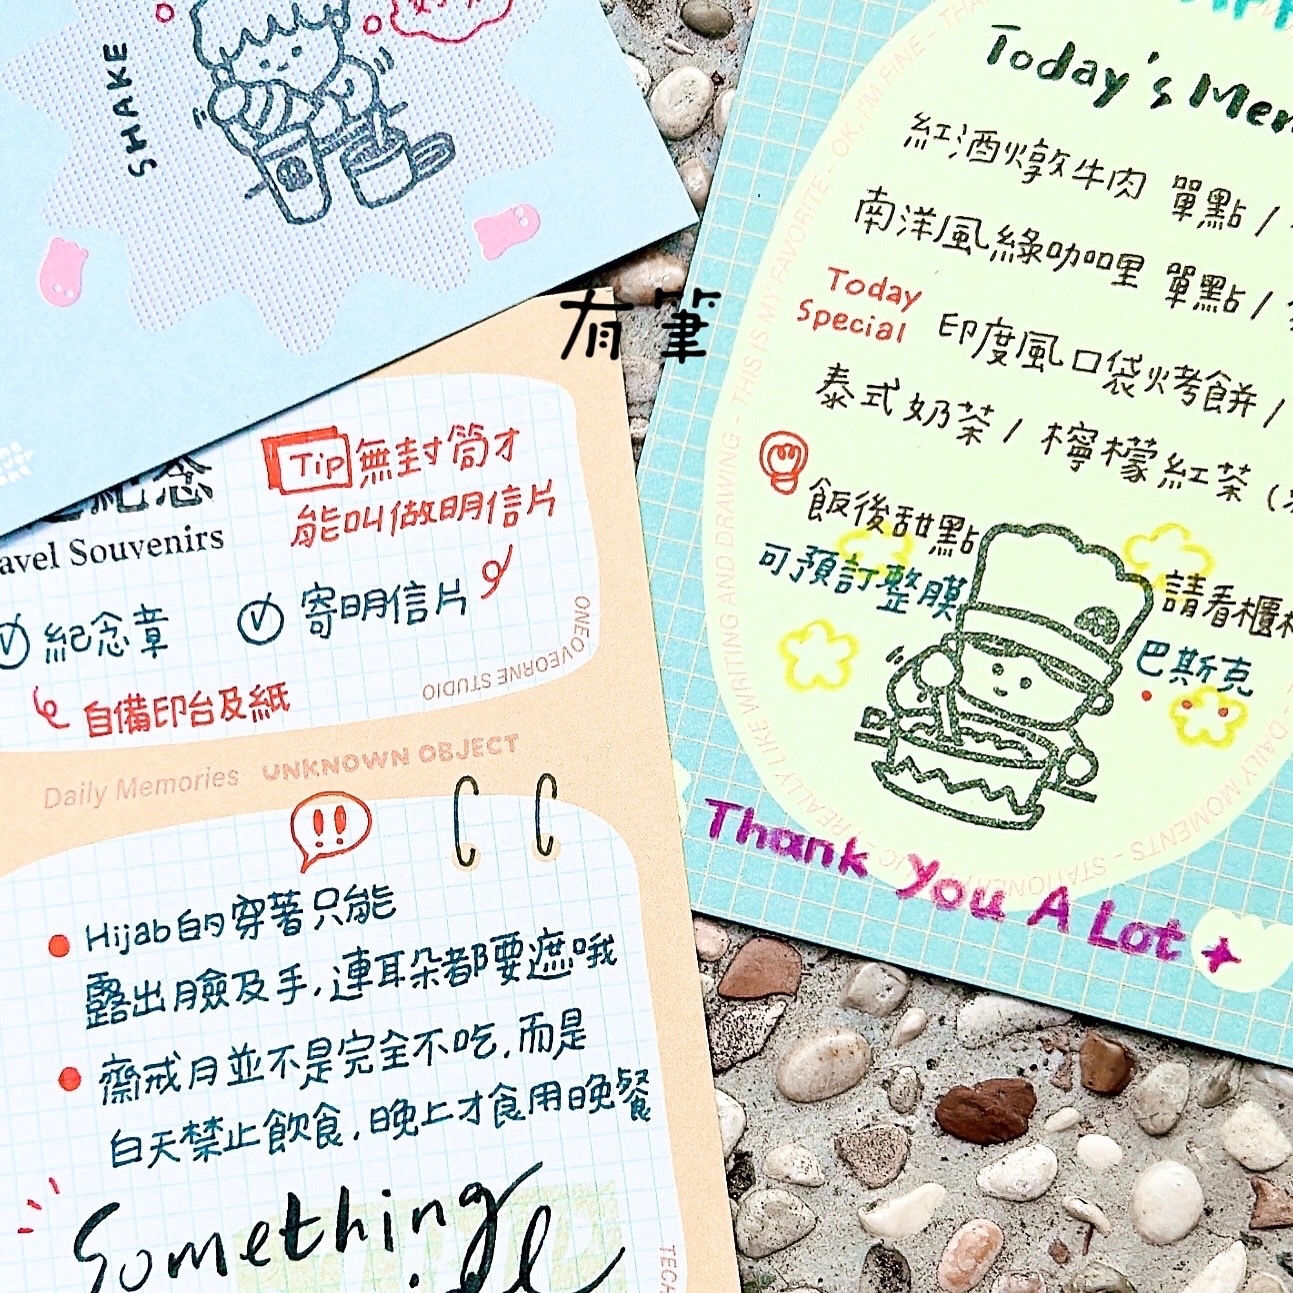 SHAKE
有筆
Tip 無封筒才
能叫做明信片
紀念
avel Souvenirs
紀念章
寄明信片
自備印台及紙
ONEOVEORNE STUDIO
Daily Memories UNKNOWN OBJECT
!!
Hijab的穿著只能
露出臉及手,連耳朵都要遮哦
齋戒月並不是完全不吃,而是
白天禁止飲食,晚上才食用晚餐
Something
Today's Men
紅酒燉牛肉 單點 /
南洋風綠咖哩 單點 /
Today
Special
印度風口袋烤餅 /
泰式奶茶 / 檸檬紅茶 (
飯後甜點
可預訂整模
請看櫃
巴斯克
OK, I'M FINE - THIS IS MY FAVORITE - REALLY LIKE WRITING AND DRAWING
STATIONERY
- DAILY MOMENTS
Thank You A Lot